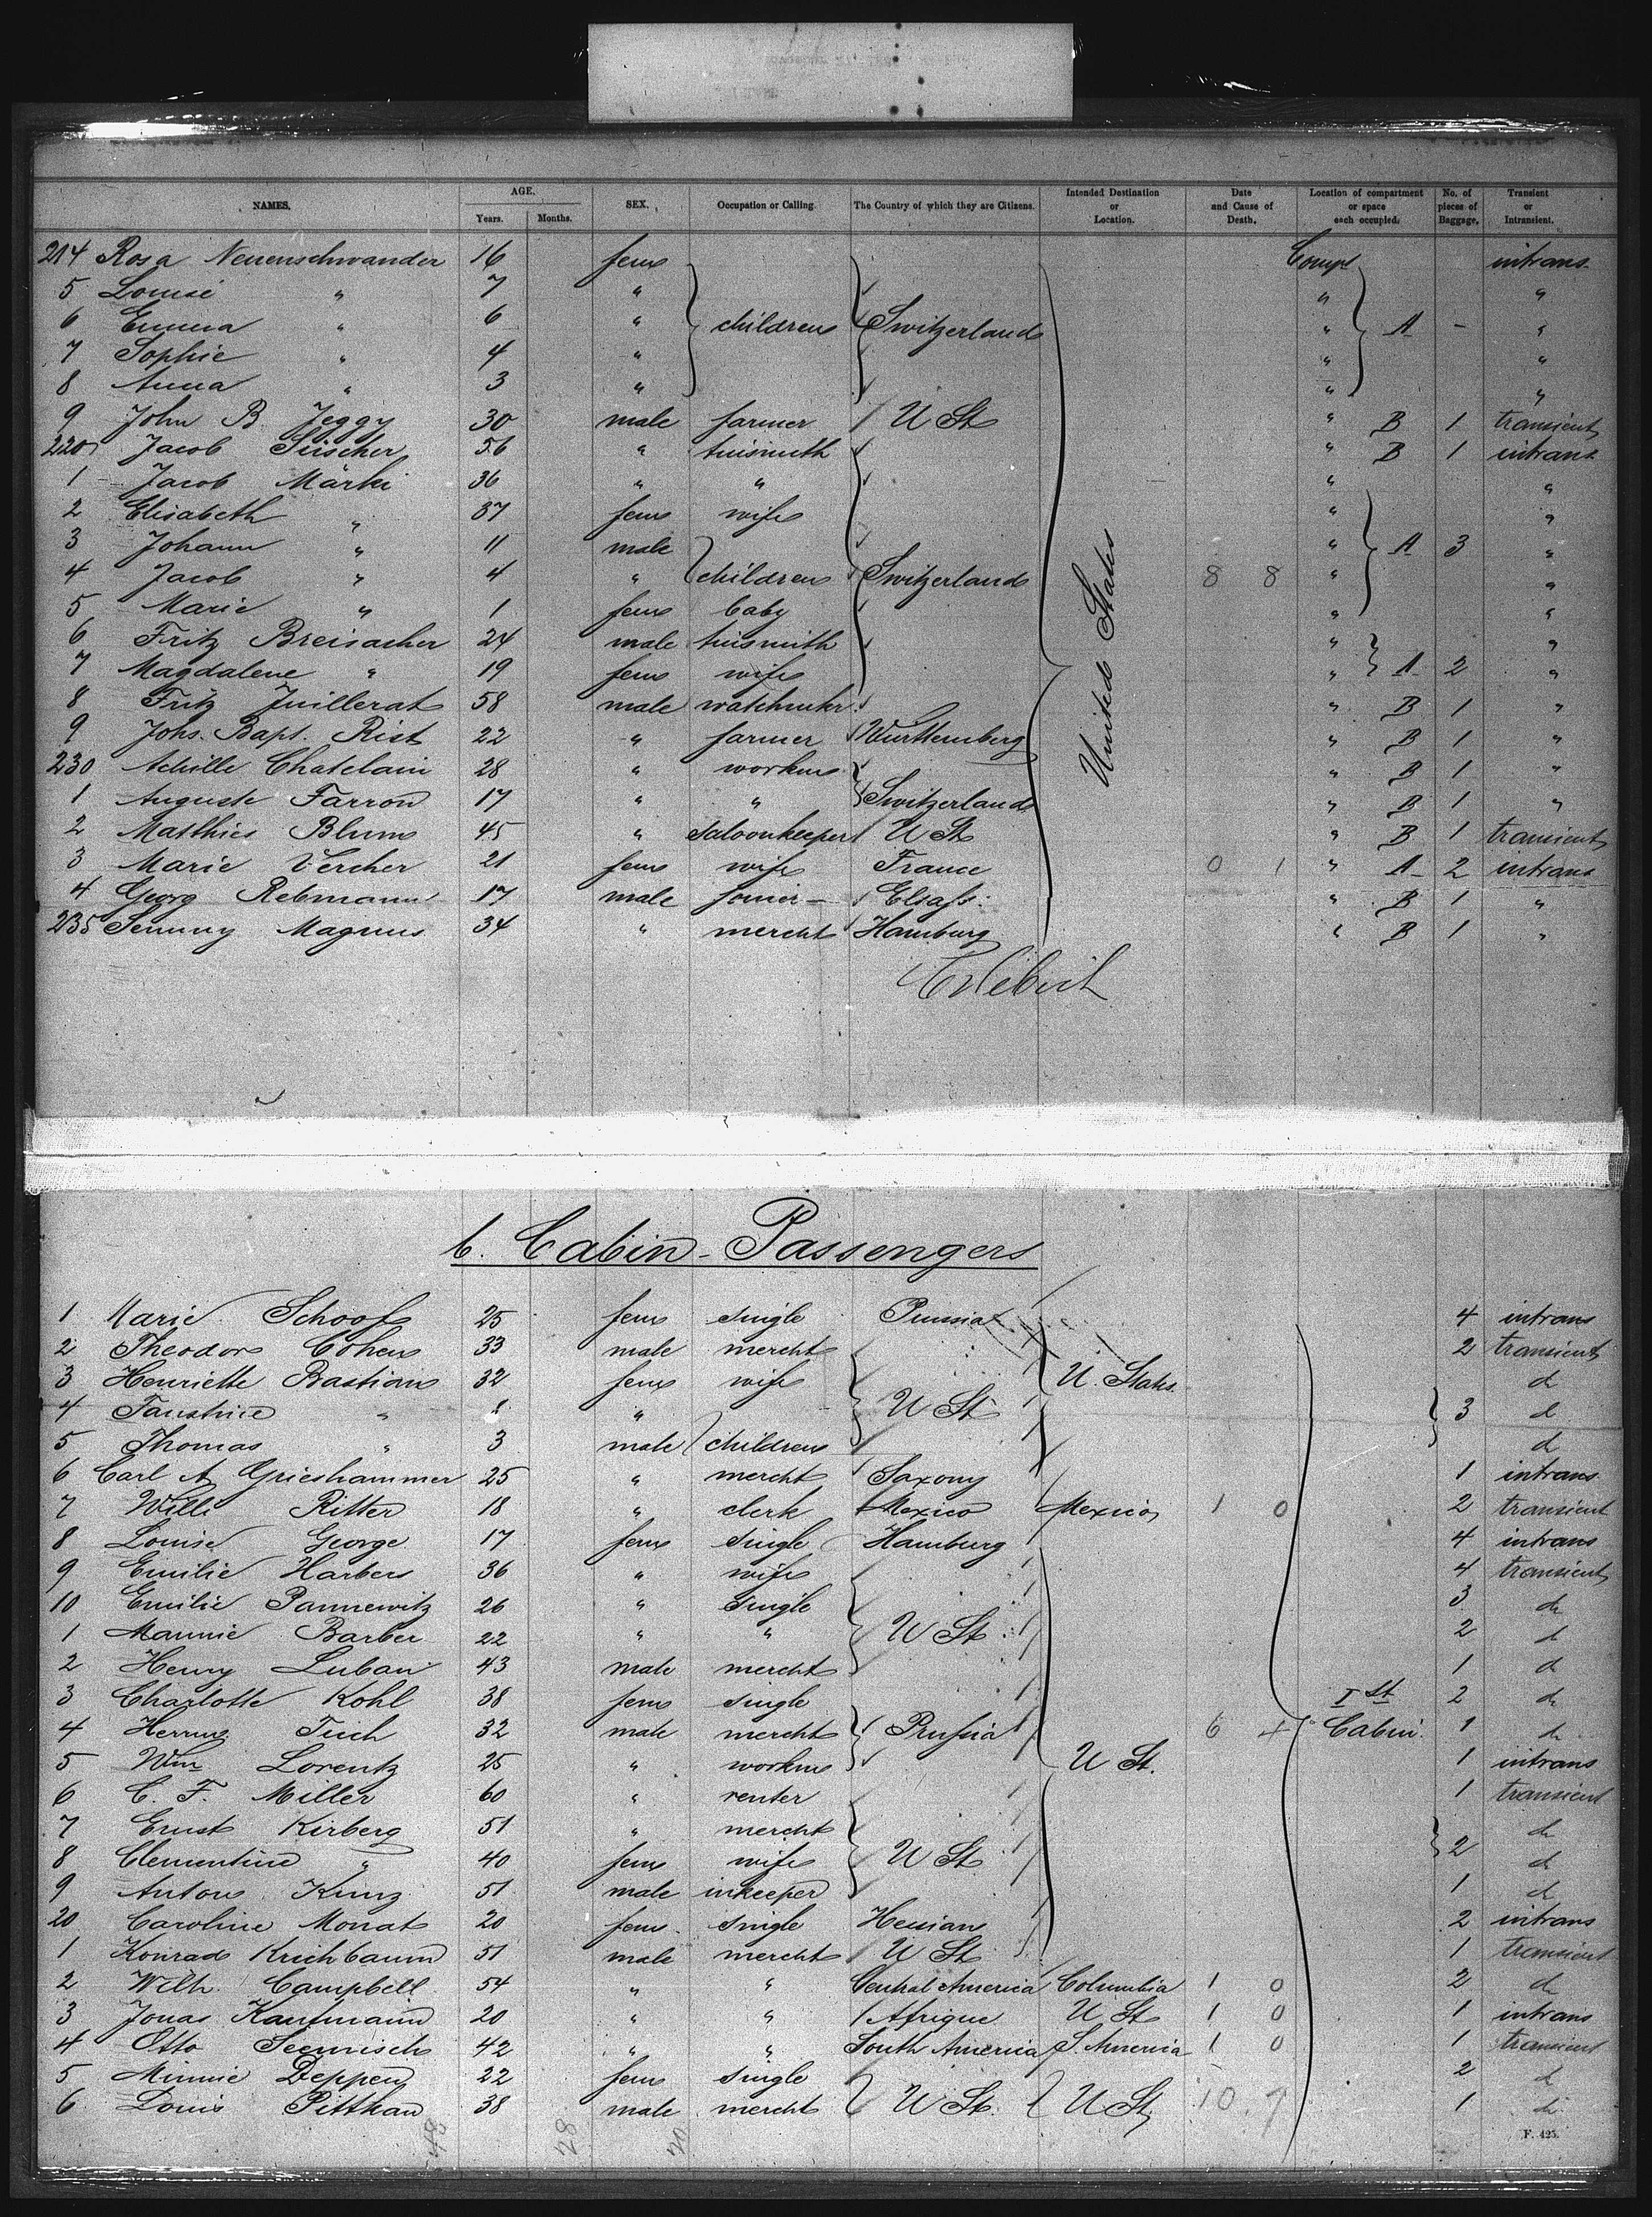 NAMES. AGE. Years. Months. SEX. Occupation or Calling. The Country of which they are Citizens. Intended Destination or Location. Date and Cause of Death. Location of compartment or space each occupied. No. of pieces of Baggage. Transient or Intransient.
214 Rosa Neuenschwander 16 fem Comp intrans
5 Louise " 7 " " "
6 Emma " 6 " children Switzerland " A - "
7 Sophie " 4 " " "
8 Anna " 3 " " "
9 John B. Jeggy 30 male farmer U St " B 1 transient
220 Jacob 56 " tinsmith " B 1 intrans
1 Jacob Märki 36 " " " "
2 Elisabeth " 37 fem wife " "
3 Johann " 11 male " A 3 "
4 Jacob " 4 " children Switzerland United States 8 8 " "
5 Marie " 1 fem baby " "
6 Fritz Breisacher 24 male tinsmith " "
7 Magdalene " 19 fem wife " A 2 "
8 Fritz Juillerat 58 male watchmkr " B 1 "
9 Johs. Bapt. Rist 22 " farmer Württemberg " B 1 "
230 Achille Chatelain 28 " workm " B 1 "
1 Auguste Farron 17 " " Switzerland " B 1 "
2 Matthies Blum 45 " saloonkeeper U St " B 1 transient
3 Marie Vercher 21 fem wife France 0 1 " A 2 intrans
4 Georg Rebmann 17 male joiner - Elsaß " B 1 "
235 Semmy Magnus 34 " mercht Hamburg " B 1 "
b. Cabin-Passengers
1 Marie Schoof 25 fem single Prussia 4 intrans
2 Theodor Cohen 33 male mercht 2 transient
3 Henriette Bastian 32 fem wife U. States d
4 Faustine " " U St 3 d
5 Thomas " 3 male children d
6 Carl A Grieshammer 25 " mercht Saxony 1 intrans
7 Willi Ritter 18 " clerk Mexico Mexico 1 0 2 transient
8 Louise George 17 fem single Hamburg 4 intrans
9 Emilie Harbers 36 " wife 4 transient
10 Emilie Pannewitz 26 " single 3 do
1 Mannie Barber 22 " " U St 2 d
2 Henry Luban 43 male mercht 1 d
3 Charlotte Kohl 38 fem single Ist 2 do
4 Herm. Tuch 32 male mercht Prußia 6 4 Cabin 1 do
5 Wm Lorentz 25 " workm U St. 1 intrans
6 C. F. Miller 60 " renter 1 transient
7 Ernst Kirberg 51 " mercht do
8 Clementine " 40 fem wife U St 2 d
9 Anton Kunz 51 male inkeeper 1 d
20 Caroline Monat 20 fem single Hessian 2 intrans
1 Konrad Krichbaum 51 male mercht U St 1 transient
2 Wilh. Campbell 54 " " Central America Columbia 1 0 2 do
3 Jonas Kaufmann 20 " " Afrique U St 1 0 1 intrans
4 Otto Seemisch 42 " " South America S. America 1 0 1 transient
5 Minnie Deppen 22 fem single 2 d
6 Louis Pitthan 38 male mercht U St. U St 10 7 1 do
F. 425.
48 28 20